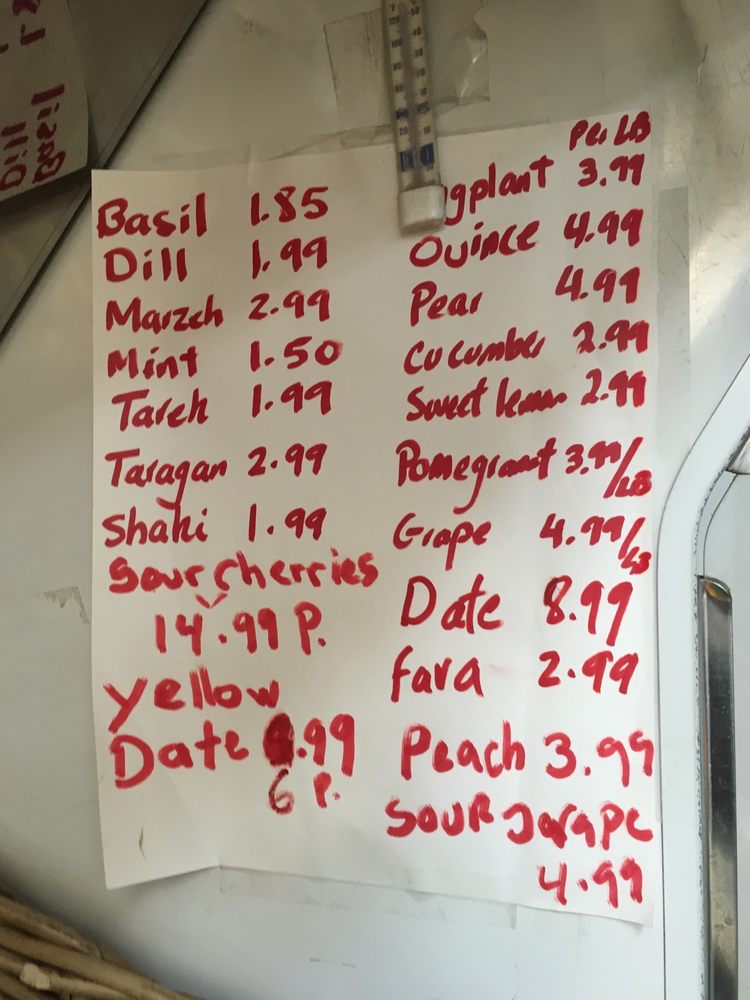 Basil 1.85
Dill 1.99
Marzch 2.99
Mint 1.50
Tareh 1.99
Taragan 2.99
Shahi 1.99
Sour cherries
14.99 P.
Yellow
Date .99
6 P.
Per LB
ggplant 3.99
Quince 4.99
Pear 4.99
Cucumber 2.99
Sweet lemon 2.99
Pomegranat 3.99/LB
Grape 4.99/LB
Date 8.99
Fava 2.99
Peach 3.99
Sour Jarape
4.99
Dill
Basil
120 50
100 40
80
60
20 10